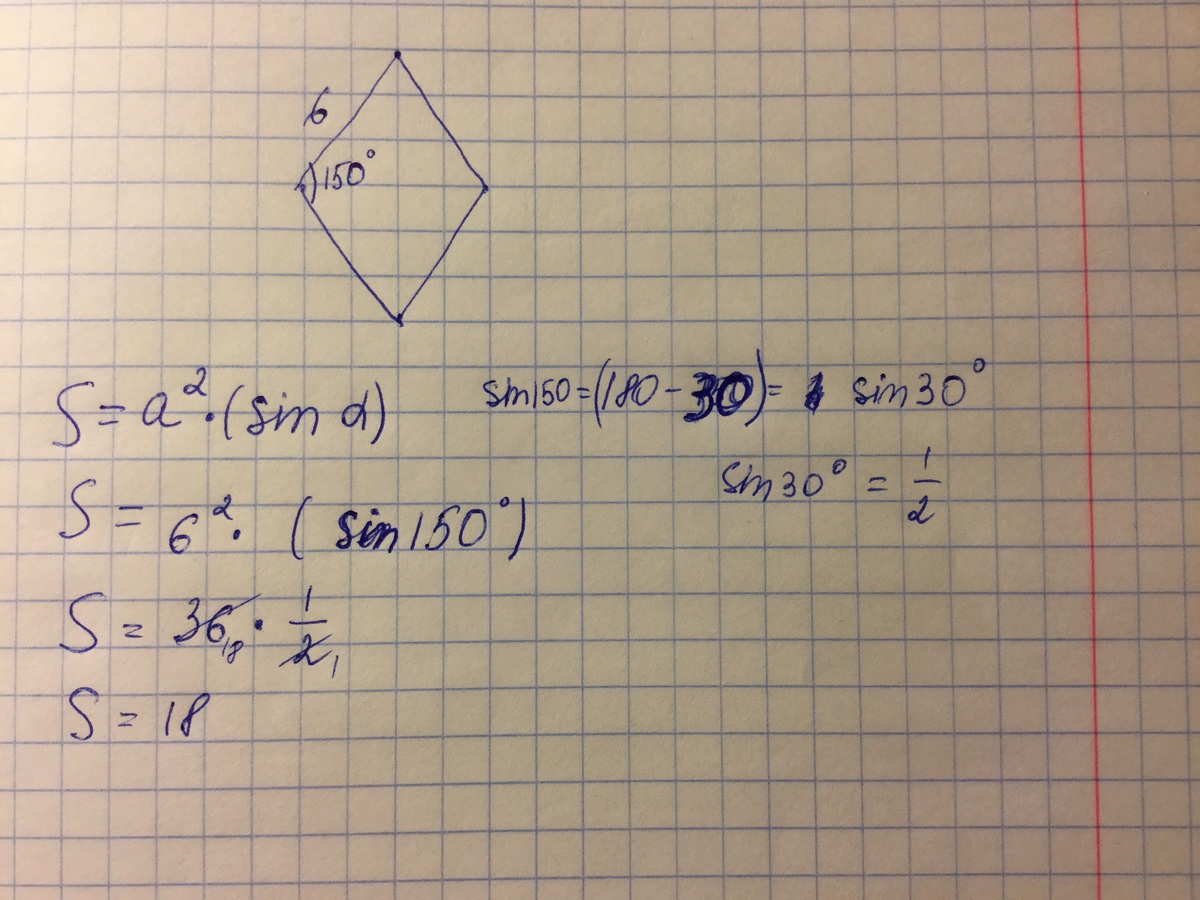 6
150°
S = a² · (sin α)
sin150 = (180 - 30) = sin 30°
sin 30° = 1/2
S = 6² · (sin 150°)
S = 36 18 · 1/2 1
S = 18